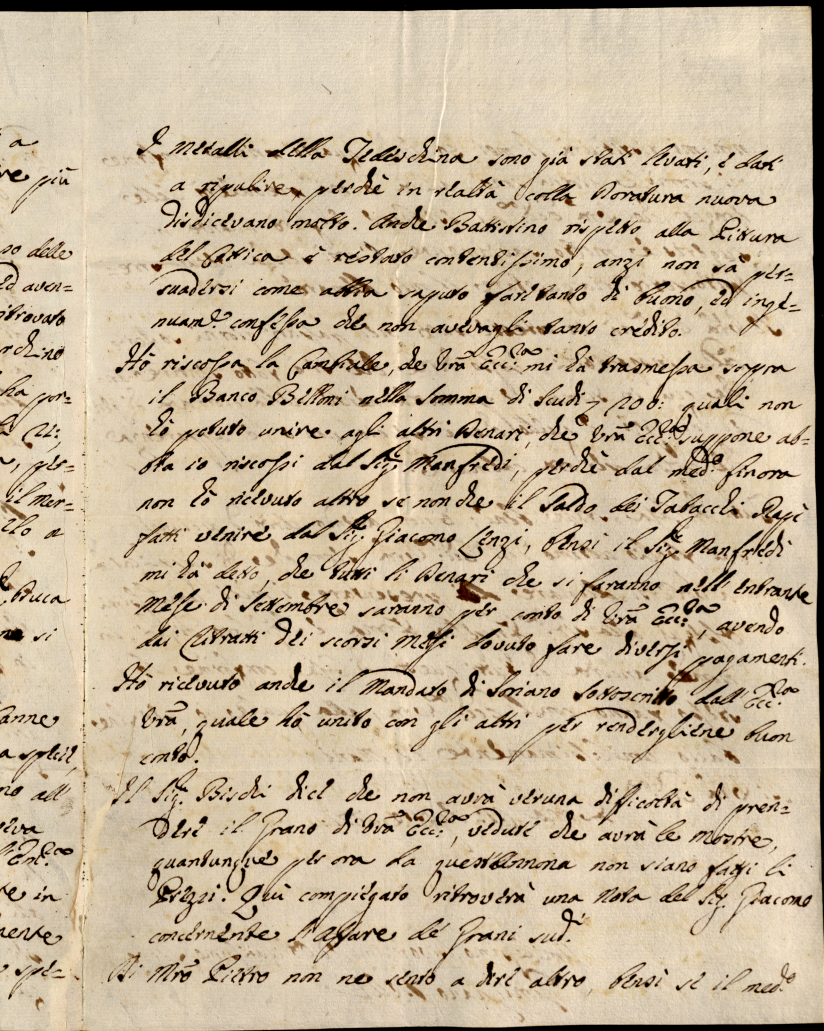 a
re più
I metalli della Tedeschina sono già stati levati, e dati
a ripulire perchè in realtà colla Doratura nuova
disdicevano molto. Anche Battistino rispetto alla Pittura
so delle
del Cattica è restato contentissimo, anzi non sà per-
ed aven-
suadersi come abbia saputo fare tanto di buono, ed inge-
itrovato
nuam.e confessa che non avevagli tanto credito.
rchino
Hò riscossa la Cambiale, che Vrã Ecc.za mi hà trasmessa sopra
ha por-
il Banco Belloni nella Somma di Scudi 200: quali non
hò potuto unire agli altri Denari, che Vrã Ecc.za suppone ab-
, per-
bia io riscossi dal Sig.r Manfredi, perchè dal med.o finora
il mer-
non hò ricevuto altro se non che il Saldo dei Tabacchi Rapè
llo a
fatti venire dal Sig.r Giacomo Lenzi, bensì il Sig.r Manfredi
mi hà detto, che tutti li Denari che si faranno nell'entrante
Buca
Mese di Settembre saranno per conto di Vrã Ecc.za, avendo
ne si
dai Ritratti dei scorsi Mesi dovuto fare diversi pagamenti.
Hò ricevuto anche il Mandato di Soriano Sottoscritto dall'Ecc.za
anne
Vrã, quale hò unito con gli altri per rendergliene buon
a spese,
conto.
no all'
Il Sig.r Bischi dice che non avrà veruna difficoltà di pren-
eva
dere il Grano di Vrã Ecc.za, vedute che avrà le mostre,
quantunque per ora la quest'Annona non siano fatti li
te in
Prezzi. Quì compiegato ritroverà una Nota del Sig.r Giacomo
mente
concernente l'Affare de' Grani sud.i
spe-
Di Mrõ Pietro non ne sento a dire altro, bensì se il med.o